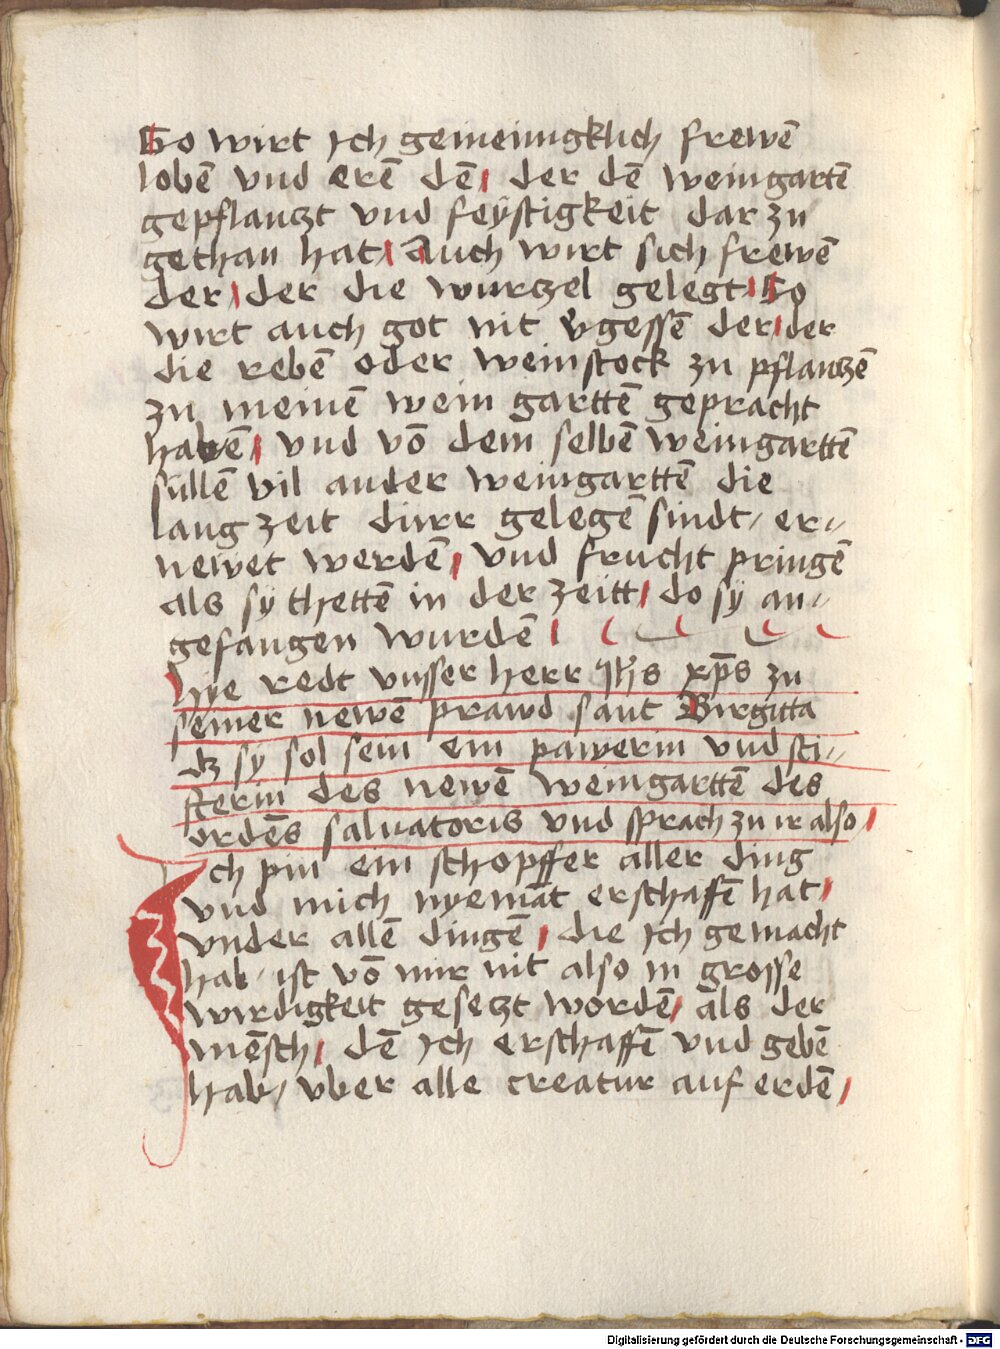 So wirt ich gemeinigklich frewē
lobē vnd erē dē, der dē weingartē
gepflantzt vnd feÿstigkeit dar zu
gethan hat, Auch wirt sich frewē
der, der die wurtzel gelegt, So
wirt auch got nit v̄gessē der, der
die rebē oder weinstock zu pflantzē
zu meinē wein garttē gepracht
habē, vnd vō dem selbē weingarttē
süllē vil ander weingarttē die
lang zeit dürr gelegē sindt, er〃
newet werdē, vnd frucht pringē
als sÿ thettē in der zeitt, do sÿ an〃
gefangen wurdē
Hye redt vnsser herr Jh̄s xp̄s zu
seiner newē prawd sant Birgitta
dz sÿ sol sein ein pawerin vnd sti〃
fterin des newē weingarttē des
ordēs saluatoris vnd sprach zu ir also,
Ich pin ein schopffer aller ding
vnd mich nyemāt erschaffē hat,
vnder allē dingē, die ich gemacht
hab, ist vō mir nit also in grosse
wirdigkeit gesetzt wordē, als der
mēsch, dē ich erschaffē vnd gebē
hab, vber alle creatur auf erdē,
Digitalisierung gefördert durch die Deutsche Forschungsgemeinschaft - DFG